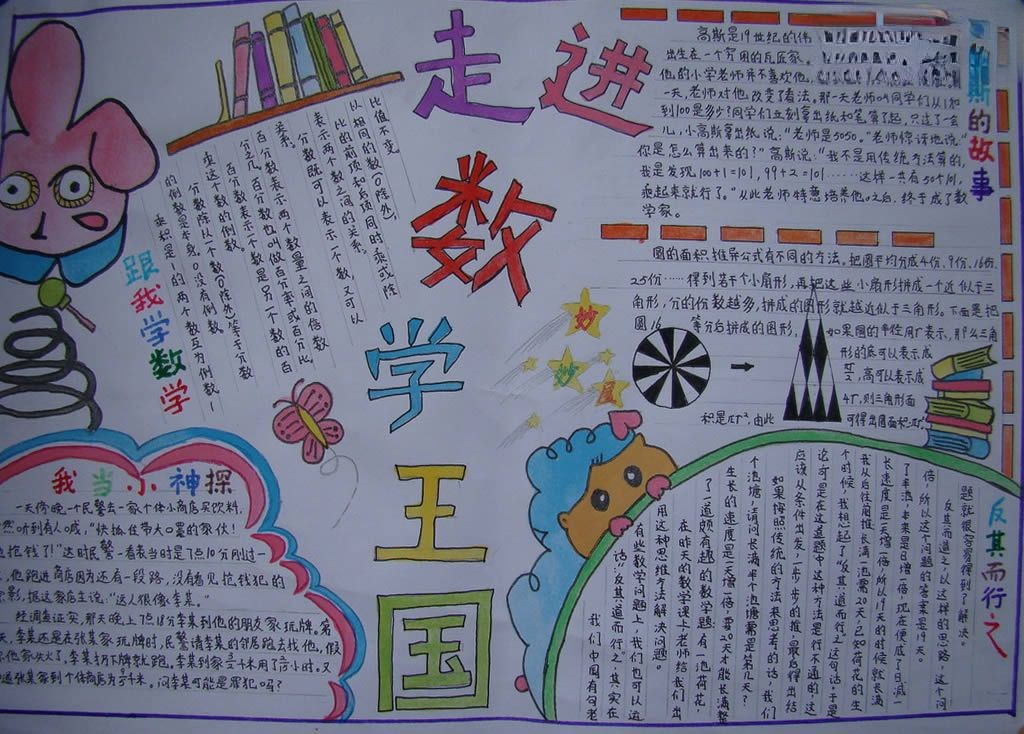 走进
数
学
王
国
高斯是19世纪的伟
出生在一个穷困的瓦匠家
他的小学老师并不喜欢他,
一天,老师对他改变了看法。那一天老师叫同学们从1加
到100是多少?同学们立刻拿出纸和笔算了起,只过了一会
儿,小高斯拿出纸说:“老师是5050。”老师惊讶地说:“
你是怎么算出来的?”高斯说:“我不是用传统方法算的,
我是发现,100+1=101,99+2=101……这样一共有50个101,
乘起来就行了。”从此老师特意培养他。之后,终于成了数
学家。
斯的故事
圆的面积推异公式有不同的方法。把圆平均分成4份、9份、16份、
25份……得到若干个小扇形,再把这些小扇形拼成一个近似于三
角形,分的份数越多,拼成的图形就越近似于三角形。下面是把
圆16
等分后拼成的图形,
如果圆的半径用r表示,那么三角
形的底可以表示成
,高可以表示成
4r,则三角形面
积是πr²,由此
可得出圆面积πr²
妙
妙
屋
比值不变。
以相同的数(0除外),
比的前项和后项同时乘或除
表示两个数之间的关系。
分数既可以表示一个数,又可以
关系。
百分数表示两个数量之间的倍数
分之几,百分数也叫做百分率或百分比,
百分数表示一个数是另一个数的百
乘这个数的倒数。
分数除以一个数(0除外)等于分数
的倒数是本身,0没有倒数。
乘积是1的两个数互为倒数,1
跟我学数学
我当小神探
一天傍晚,一个民警去一家个体小商店买饮料,
然听到有人喊,“快抓住带大口罩的家伙!
抢钱了!”这时民警一看表当时是7点10分刚过一
,他跑进商店因为还有一段路,没有看见抢钱犯的
影,据这家店主说:“这人很像李某。”
经调查证实,那天晚上7点18分李某到他的朋友家玩牌。第
天,李某还是在张某家玩牌时,民警请李某的邻居跑去找他,假
他家失火了,李某扔下牌就跑,李某到家
千米用了
小时。又
张某家到个体商店为
千米。问李某可能是罪犯吗?
反其而行之
题就很容易得到了解决。
反其而道之,以这样的思路,这个问
倍,所以这个问题的答案是19天。
了半池,本来是日增一倍,现在便成了日减一
长速度是一天增一倍,所以19天的时候就长满
我从后往前推,长满一池需20天,已知荷花的生
个时候,我想起了“反其道而行之”这句话。于是
论可是在这道题中这种方法是行不通的,这
应该从条件出发,一步一步的推,最后得出结
如果按照传统的方法来思考的话,我们
个池塘,请问长满半个池塘需是第几天?
生长的速度是一天增一倍,要20天才能长满整
了一道颇有趣的数学题,有一池荷花,
在昨天的数学课上老师给我们出
用这种思维方法解决问题。
有些数学问题上,我们也可以运
话“反其道而行之”,其实在
我们中国有句老